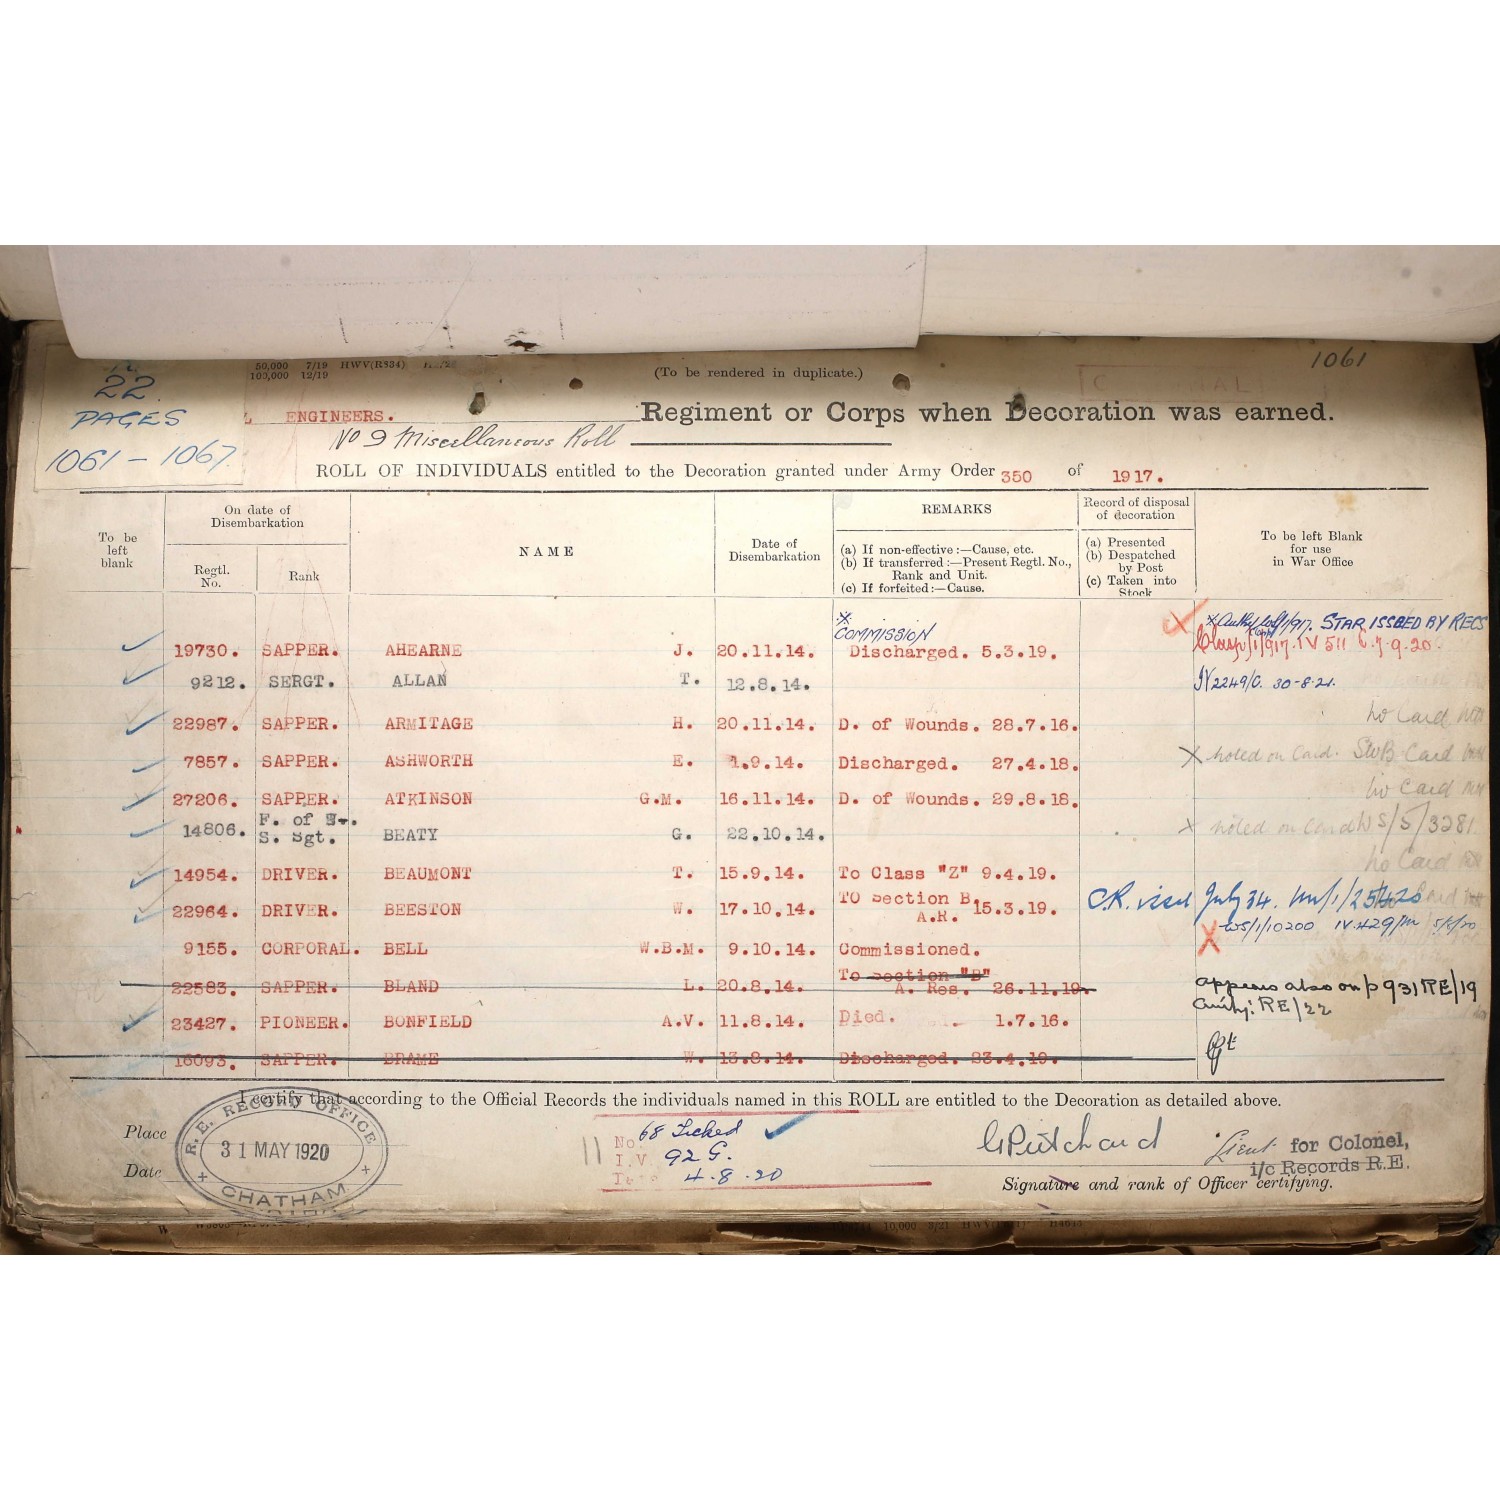 1061
50,000 7/19 HWV(R834)
100,000 12/19
(To be rendered in duplicate.)
22.
PAGES
1061 – 1067
ENGINEERS. Regiment or Corps when Decoration was earned.
No 9 Miscellaneous Roll
ROLL OF INDIVIDUALS entitled to the Decoration granted under Army Order 350 of 1917.
To be left blank
On date of Disembarkation
Regtl. No.
Rank
NAME
Date of Disembarkation
REMARKS
(a) If non-effective :—Cause, etc.
(b) If transferred :—Present Regtl. No., Rank and Unit.
(c) If forfeited :—Cause.
Record of disposal of decoration
(a) Presented
(b) Despatched by Post
(c) Taken into Stock
To be left Blank for use in War Office
COMMISSION STAR ISSUED BY RECS
19730. SAPPER. AHEARNE J. 20.11.14. Discharged. 5.3.19. Clasp 1/917. IV 511 7.9.20.
9212. SERGT. ALLAN T. 12.8.14. IV 2249/C. 30-8-21.
22987. SAPPER. ARMITAGE H. 20.11.14. D. of Wounds. 28.7.16. no Card
7857. SAPPER. ASHWORTH E. 1.9.14. Discharged. 27.4.18. X noted on Card. SWB Card
27206. SAPPER. ATKINSON G.M. 16.11.14. D. of Wounds. 29.8.18. no Card
14806. F. of W. S. Sgt. BEATY G. 22.10.14. X noted on Card WS/5/3281
14954. DRIVER. BEAUMONT T. 15.9.14. To Class "Z" 9.4.19. no Card
22964. DRIVER. BEESTON W. 17.10.14. TO Section B. A.R. 15.3.19. C.R. issd July 34.
WS/1/10200 IV.429/M 5/5/20
9155. CORPORAL. BELL W.B.M. 9.10.14. Commissioned.
22583. SAPPER. BLAND L. 20.8.14. To Section "B" A. Res. 26.11.19. appears also on p 931 RE/19
auth: RE/22
23427. PIONEER. BONFIELD A.V. 11.8.14. Died. 1.7.16.
16093. SAPPER. BRAME W. 13.8.14. Discharged. 23.4.19.
I certify that according to the Official Records the individuals named in this ROLL are entitled to the Decoration as detailed above.
Place
Date
R.E. RECORD OFFICE
31 MAY 1920
CHATHAM
No. 68 Ticked
I.V. 92 G.
4.8.20
G Pritchard Lieut for Colonel,
i/c Records R.E.
Signature and rank of Officer certifying.